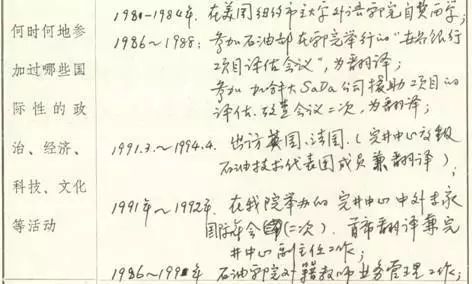 何时何地参
加过哪些国
际性的政
治、经济、
科技、文化
等活动
1980-1984年. 在美国纽约市立大学外语学院自费留学;
1986~1988: 参加石油部在我院举行的"世界银行
项目评估会议", 为翻译;
参加加拿大SaDa公司援助项目的
评估、检查会议二次, 为翻译;
1991.3.~1994.4. 出访英国、法国. (完井中心高级
石油技术代表团成员兼翻译);
1991年~1992年. 在我院举办的完井中心中外专家
国际年会(二次). 首席翻译兼完
井中心副主任工作;
1986~1991年 石油学院外籍教师业务管理工作;